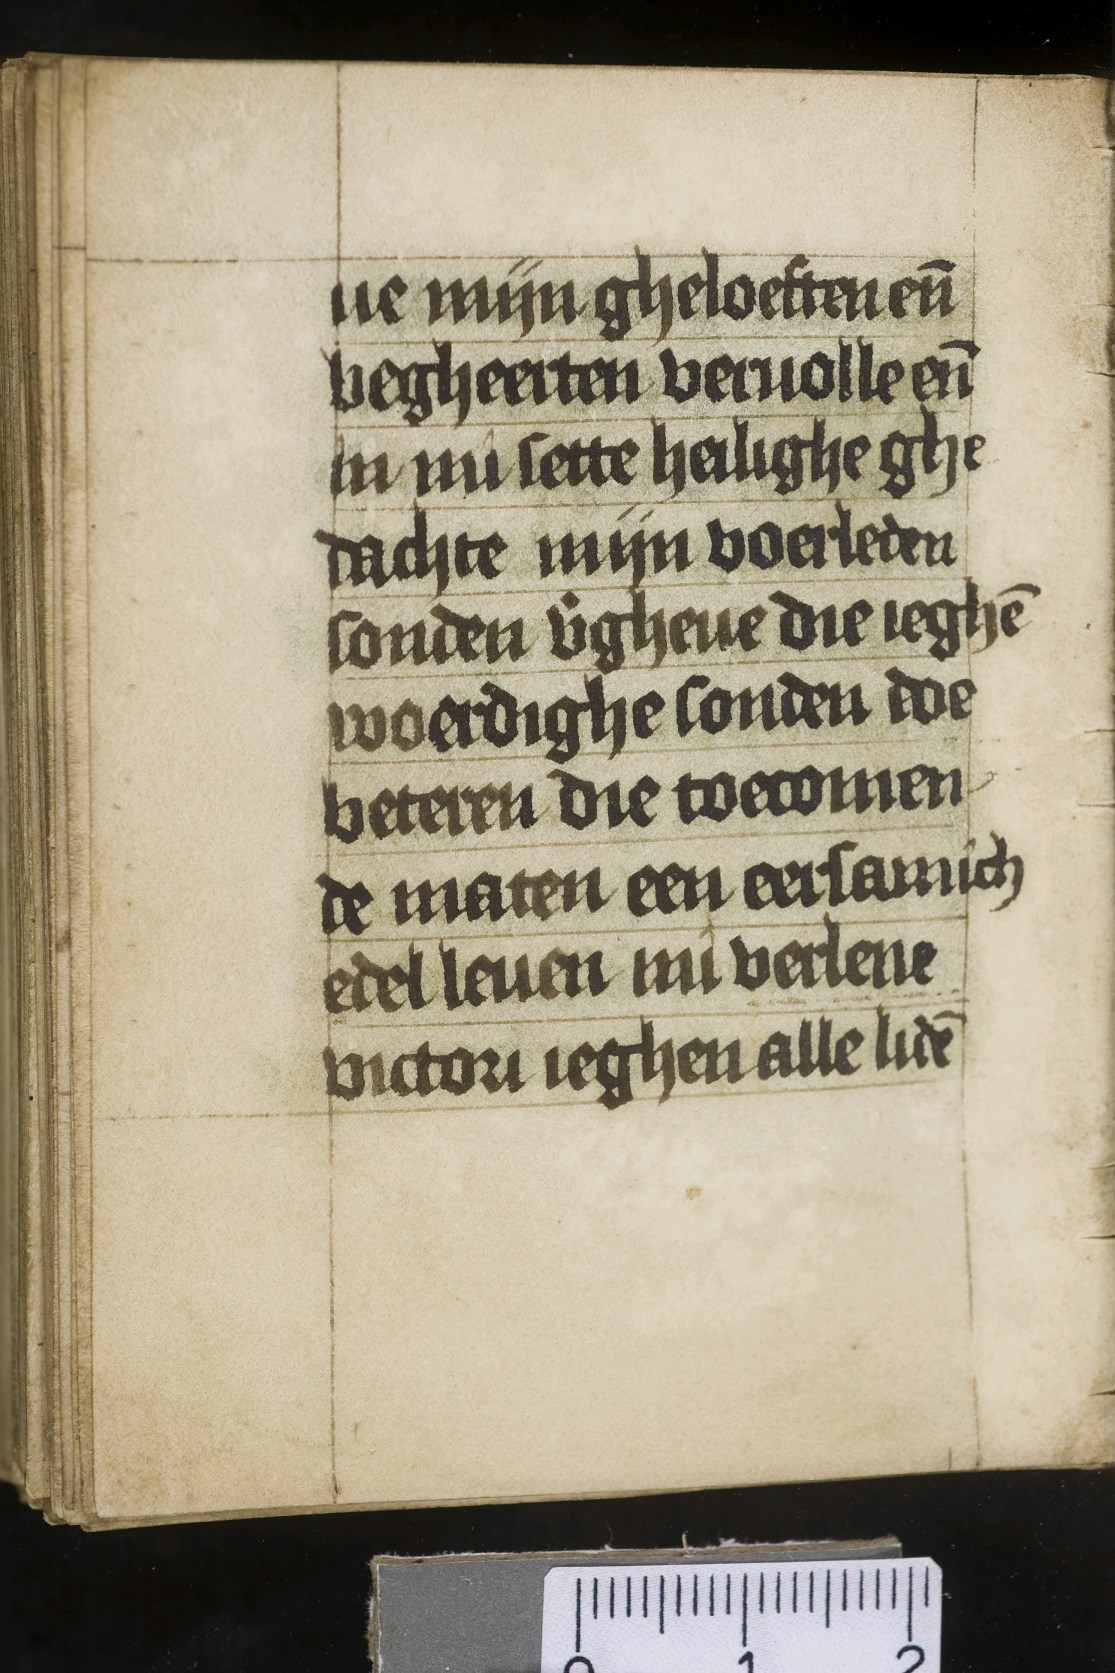 ue mijn gheloeften en̄
begheerten veruolle en̄
in mi sette heilighe ghe
dachte mijn voerleden
sonden v̉gheue die ieghē
woerdighe sonden doe
beteren die toecomen
de maten een eersamich
edel leuen mi verlene
victori ieghen alle lidē
0 1 2